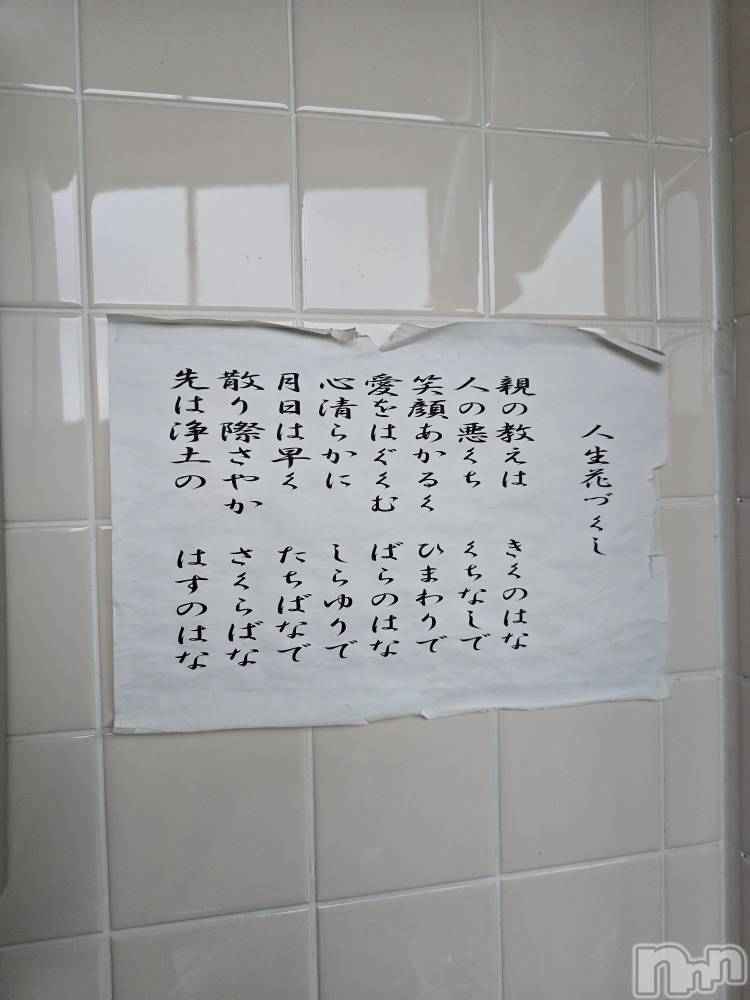 人生花づくし
親の教えは きくのはな
人の悪くち くちなしで
笑顔あかるく ひまわりで
愛をはぐくむ ばらのはな
心清らかに しらゆりで
月日は早く たちばなで
散り際さやか さくらばな
先は浄土の はすのはな
nnn